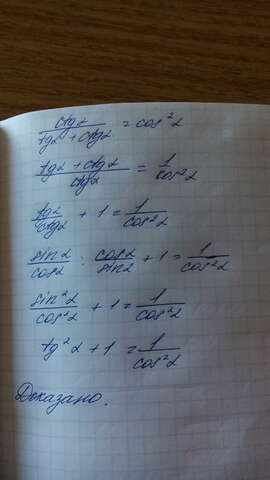 ctgα / (tgα + ctgα) = cos²α
(tgα + ctgα) / ctgα = 1 / cos²α
tgα / ctgα + 1 = 1 / cos²α
sinα / cosα : cosα / sinα + 1 = 1 / cos²α
sin²α / cos²α + 1 = 1 / cos²α
tg²α + 1 = 1 / cos²α
Доказано.